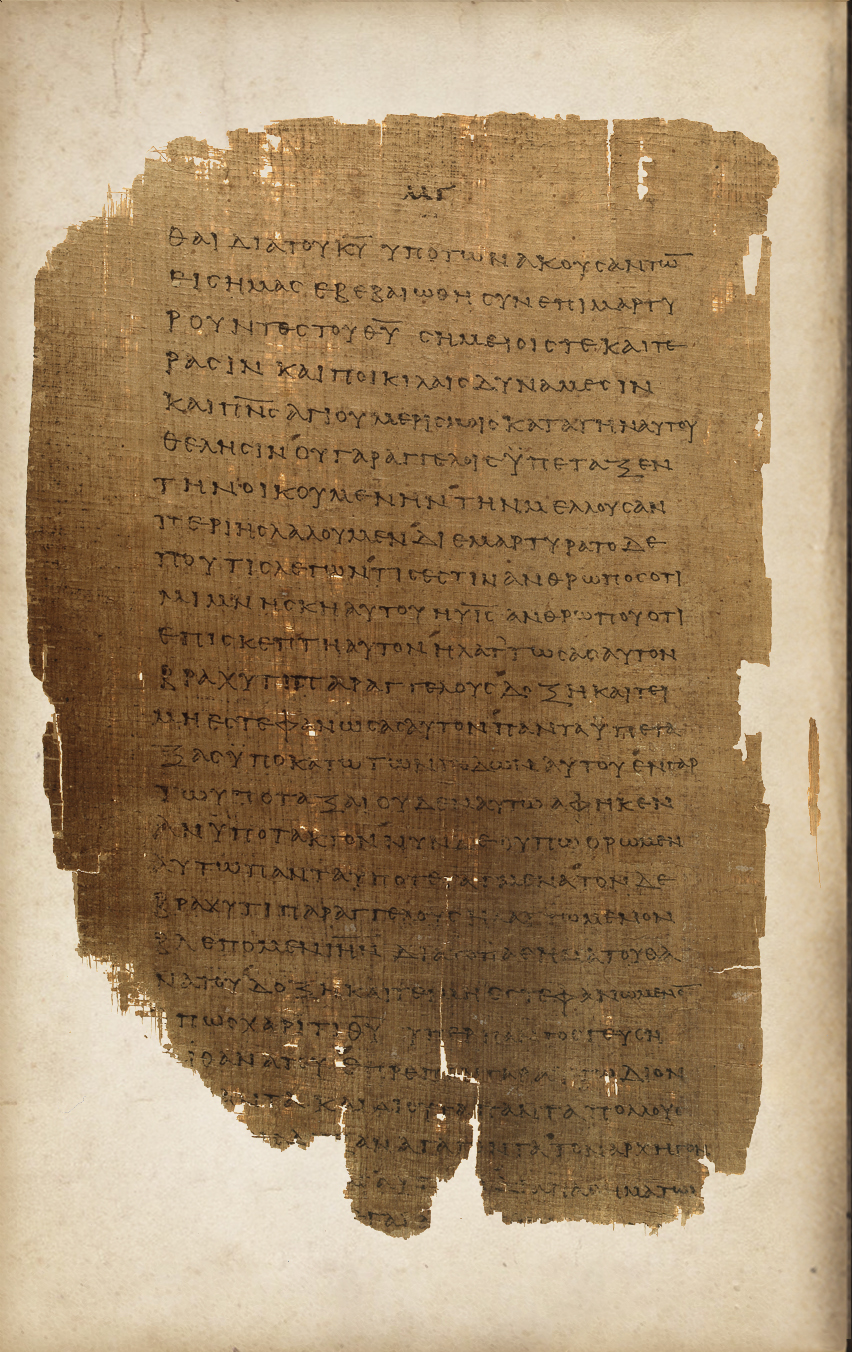 ΜΓ
ΘΑΙ ΔΙΑ ΤΟΥ Κ̅Υ̅ ΥΠΟ ΤΩΝ ΑΚΟΥΣΑΝΤΩ̅
ΕΙΣ ΗΜΑΣ ΕΒΕΒΑΙΩΘΗ ΣΥΝΕΠΙΜΑΡΤΥ
ΡΟΥΝΤΕΣ ΤΟΥ Θ̅Υ̅ ΣΗΜΕΙΟΙΣ ΤΕ ΚΑΙ ΤΕ
ΡΑΣΙΝ ΚΑΙ ΠΟΙΚΙΛΑΙΣ ΔΥΝΑΜΕΣΙΝ
ΚΑΙ Π̅Ν̅Σ̅ ΑΓΙΟΥ ΜΕΡΙΣΜΟΙΣ ΚΑΤΑ ΤΗΝ ΑΥΤΟΥ
ΘΕΛΗΣΙΝ ΟΥ ΓΑΡ ΑΓΓΕΛΟΙΣ ΫΠΕΤΑΞΕΝ
ΤΗΝ ΟΙΚΟΥΜΕΝΗΝ ΤΗΝ ΜΕΛΛΟΥΣΑΝ
ΠΕΡΙ ΗΣ ΛΑΛΟΥΜΕΝ ΔΙΕΜΑΡΤΥΡΑΤΟ ΔΕ
ΠΟΥ ΤΙΣ ΛΕΓΩΝ ΤΙΣ ΕΣΤΙΝ ΑΝΘΡΩΠΟΣ ΟΤΙ
ΜΙΜΝΗΣΚΗ ΑΥΤΟΥ Η Υ̅Ι̅Σ̅ ΑΝΘΡΩΠΟΥ ΟΤΙ
ΕΠΙΣΚΕΠΤΗ ΑΥΤΟΝ ΗΛΑΤΤΩΣΑΣ ΑΥΤΟΝ
ΒΡΑΧΥ ΤΙ ΠΑΡ ΑΓΓΕΛΟΥΣ ΔΟΞΗ ΚΑΙ ΤΕΙ
ΜΗ ΕΣΤΕΦΑΝΩΣΑΣ ΑΥΤΟΝ ΠΑΝΤΑ ΫΠΕΤΑ
ΞΑΣ ΥΠΟΚΑΤΩ ΤΩΝ ΠΟΔΩΝ ΑΥΤΟΥ ΕΝ ΓΑΡ
ΤΩ ΥΠΟΤΑΞΑΙ ΟΥΔΕΝ ΑΥΤΩ ΑΦΗΚΕΝ
ΑΝΫΠΟΤΑΚΤΟΝ ΝΥΝ ΔΕ ΟΥΠΩ ΟΡΩΜΕΝ
ΑΥΤΩ ΠΑΝΤΑ ΥΠΟΤΕΤΑΓΜΕΝΑ ΤΟΝ ΔΕ
ΒΡΑΧΥ ΤΙ ΠΑΡ ΑΓΓΕΛΟΥΣ ΗΛΑΤΤΩΜΕΝΟΝ
ΒΛΕΠΟΜΕΝ Ι̅Η̅Ν̅ ΔΙΑ ΤΟ ΠΑΘΗΜΑ ΤΟΥ ΘΑ
ΝΑΤΟΥ ΔΟΞΗ ΚΑΙ ΤΕΙΜΗ ΕΣΤΕΦΑΝΩΜΕΝΟ̅
ΠΩΣ ΧΑΡΙΤΙ Θ̅Υ̅ ΥΠΕΡ ΓΕΥΣΗ
ΘΑΝΑΤΟΥ ΕΠΡΕΠ ΔΙΟΝ
ΚΑΙ ΔΙ ΟΥ ΤΑ ΠΑΝΤΑ ΠΟΛΛΟΥΣ
ΤΟΝ ΑΡΧΗΓΟΝ
ΗΜΑΤΩΝ